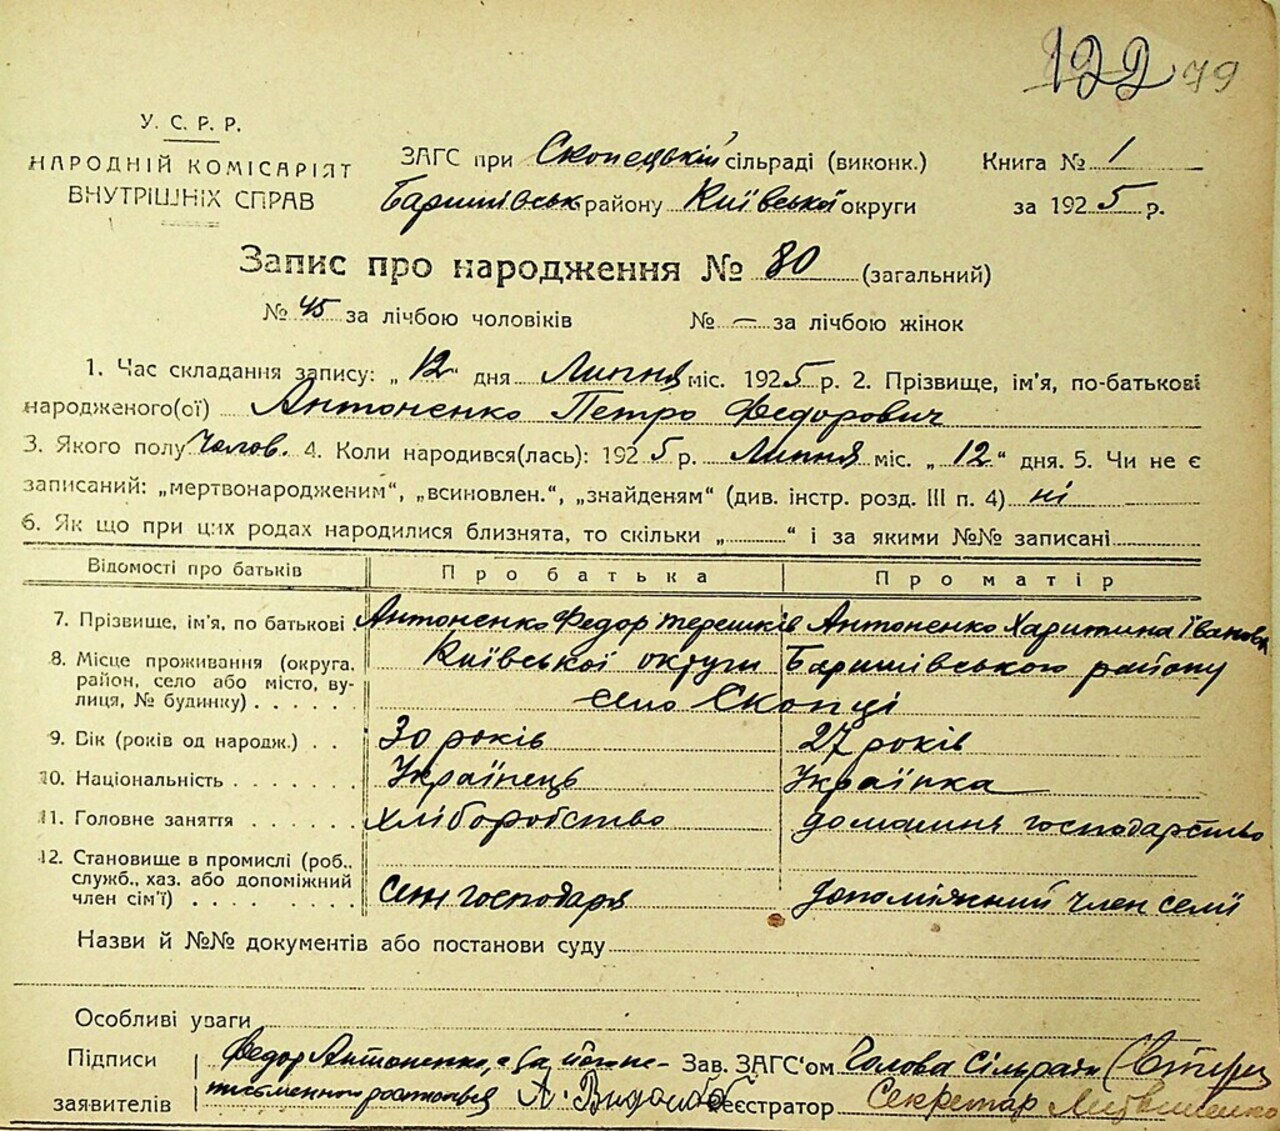 122 79
У. С. Р. Р.
НАРОДНІЙ КОМІСАРІЯТ
ВНУТРІШНІХ СПРАВ
ЗАГС при Скопецькій сільраді (виконк.) Книга № 1
Баришівськ району Київської округи за 1925 р.
Запис про народження № 80 (загальний)
№ 45 за лічбою чоловіків № — за лічбою жінок
1. Час складання запису: „12“ дня Липня міс. 1925 р. 2. Прізвище, ім'я, по-батькові
народженого(ої) Антоненко Петро Федорович
3. Якого полу Чолов. 4. Коли народився(лась): 1925 р. Липня міс. „12“ дня. 5. Чи не є
записаний: „мертвонародженим“, „всиновлен.“, „знайденям“ (див. інстр. розд. III п. 4) ні
6. Як що при цих родах народилися близнята, то скільки „..........“ і за якими №№ записані
Відомості про батьків Про батька Про матір
7. Прізвище, ім'я, по батькові Антоненко Федор Терешків Антоненко Харитина Іванова
8. Місце проживання (округа, Київської округи Баришівського району
район, село або місто, ву-
лиця, № будинку) село Скопці
9. Вік (років од народж.) 30 років 27 років
10. Національність Українець Українка
11. Головне заняття хліборобство домашнє господарство
12. Становище в промислі (роб.,
служб., хаз. або допоміжний
член сім'ї) Син господаря допоміжний член семї
Назви й №№ документів або постанови суду
Особливі уваги
Підписи Федор Антоненко, а за його не- Зав. ЗАГС'ом Голова Сільради
заявителів письменного росписався А. Реєстратор Секретар